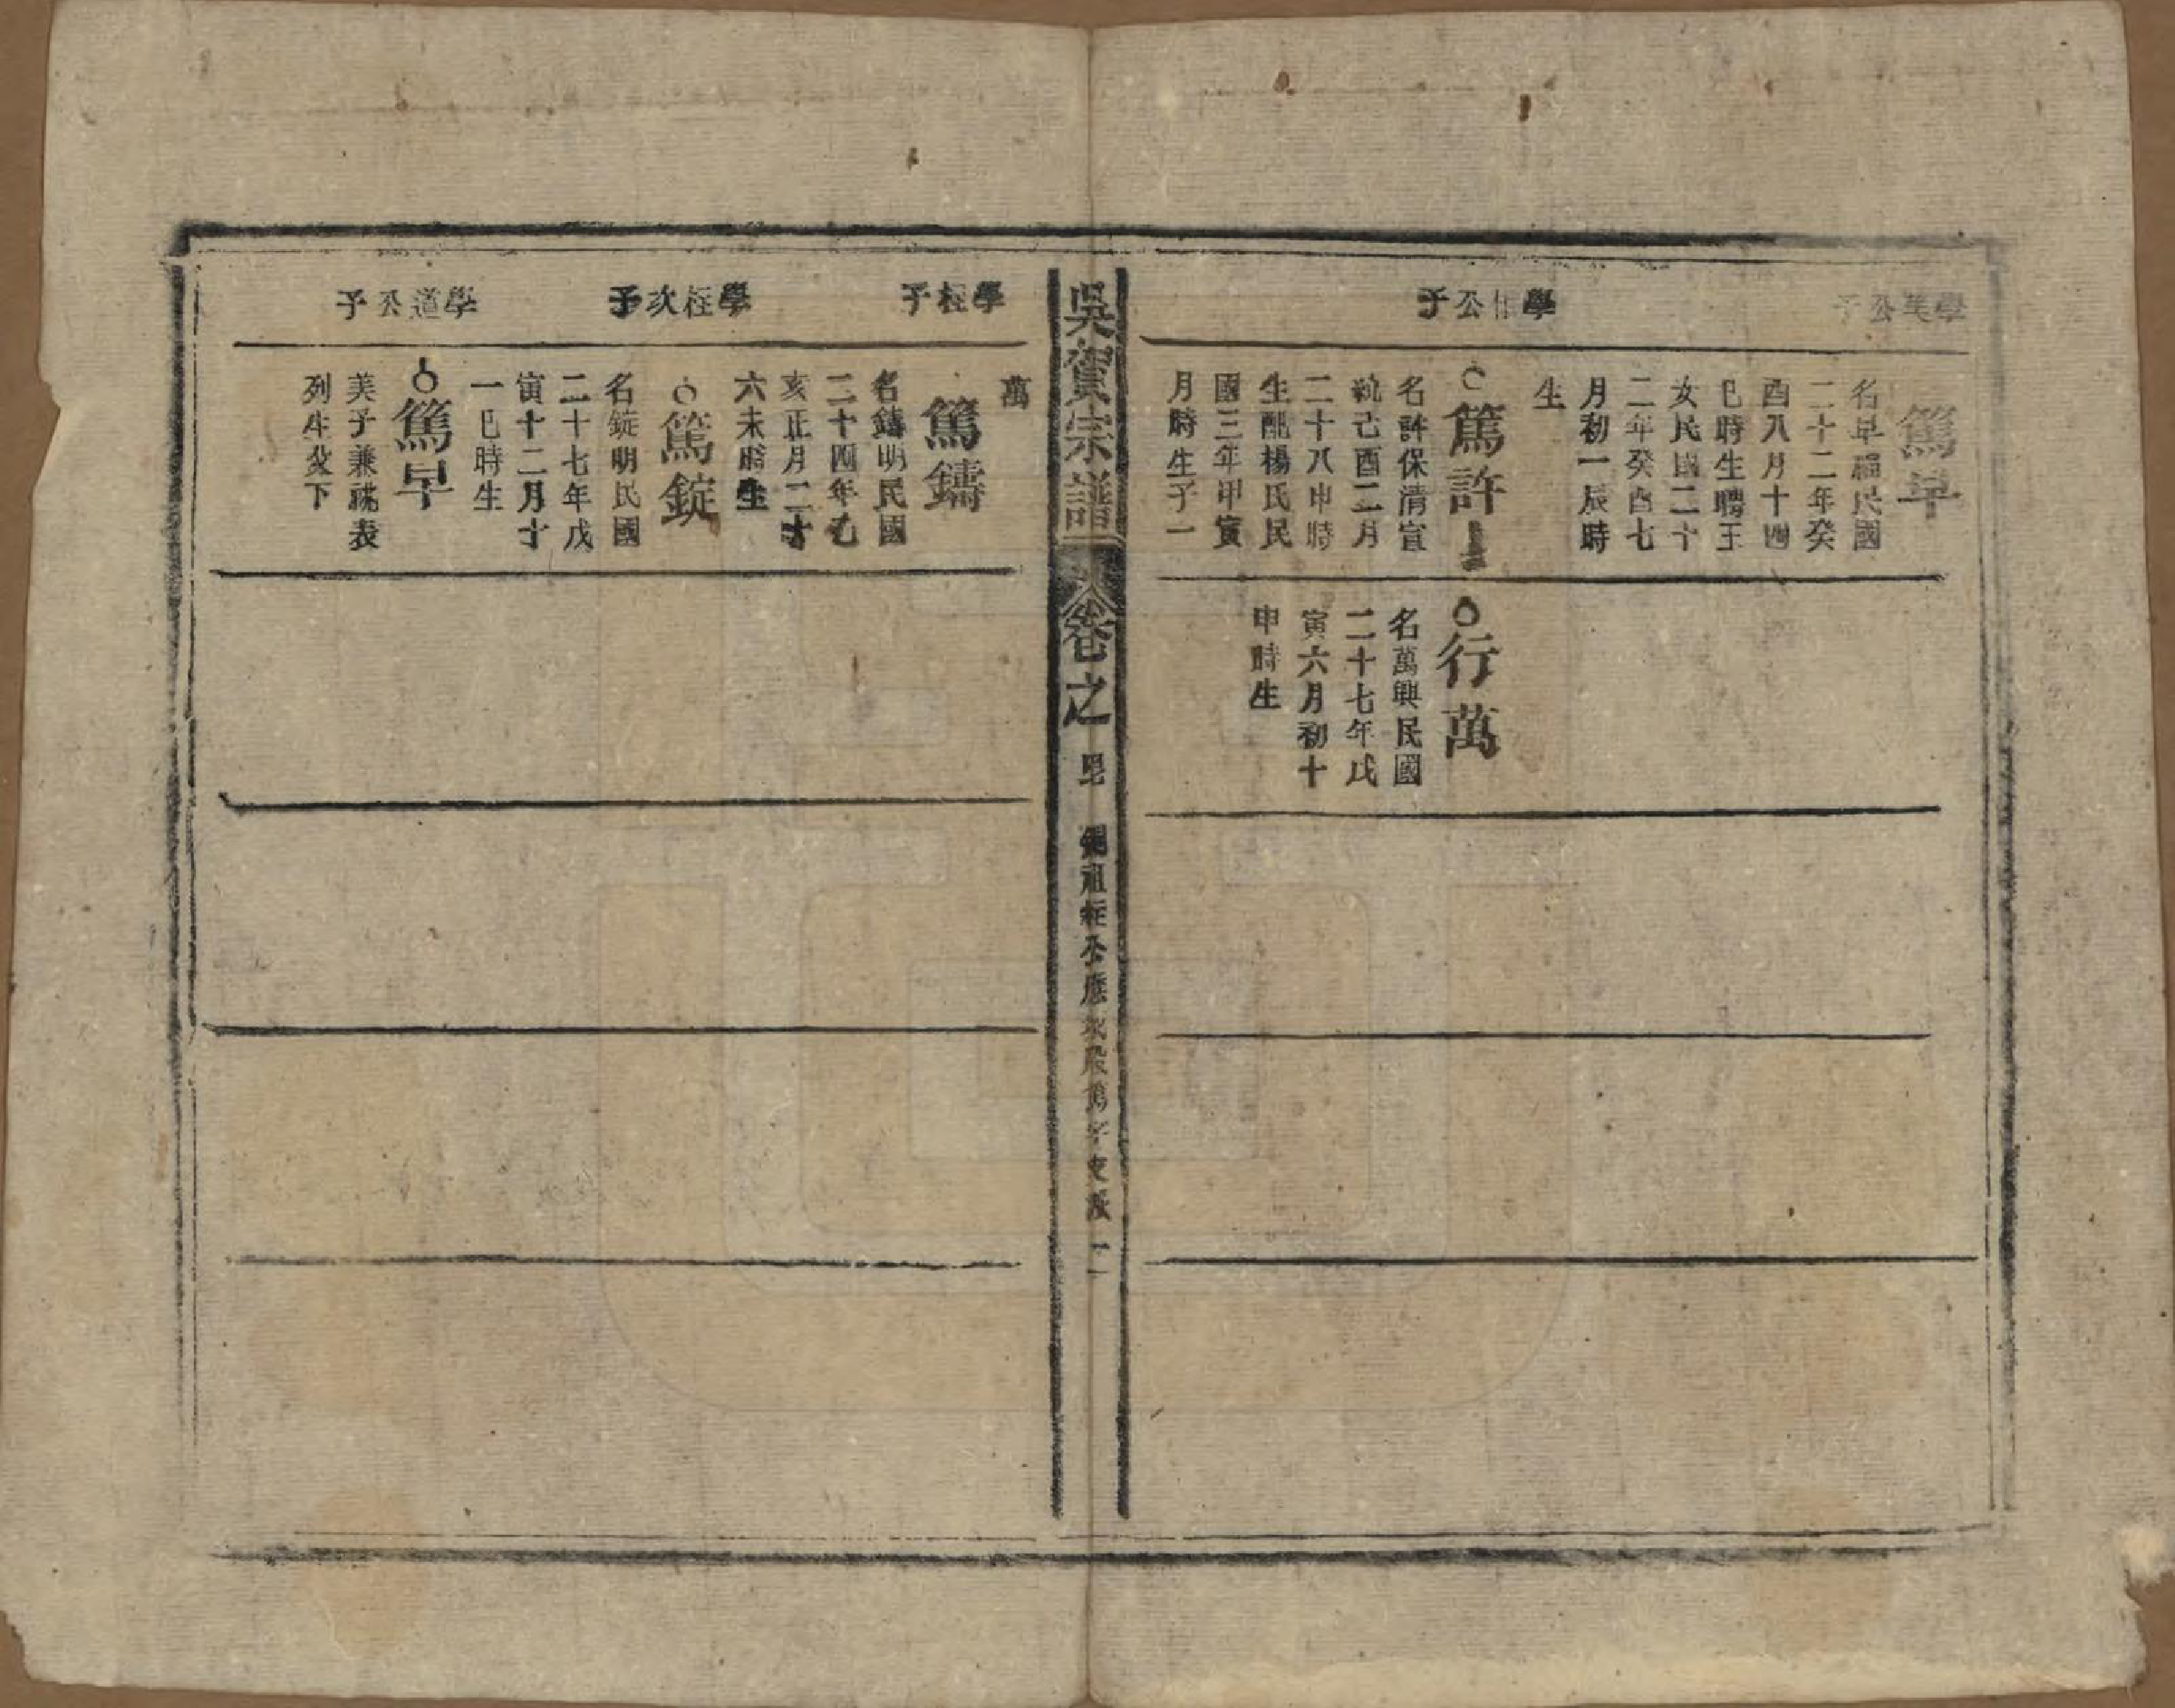 學美公子
篤早
名早福民國
二十二年癸
酉八月十四
巳時生聘王
女民國二十
二年癸酉七
月初一辰時
生
學相公子
篤許
名許保清宣
統己酉二月
二十八申時
生配楊氏民
國三年甲寅
月時生子一
行萬
名萬興民國
二十七年戊
寅六月初十
申時生
吳賀宗譜
卷之
祖 公應 股篤字支派 一
萬
學桎子
篤鑄
名鑄明民國
二十四年乙
亥正月二十
六未時生
學桎次子
篤錠
名錠明民國
二十七年戊
寅十二月十
一巳時生
學道公子
篤早
美子兼祧表
列生娶下